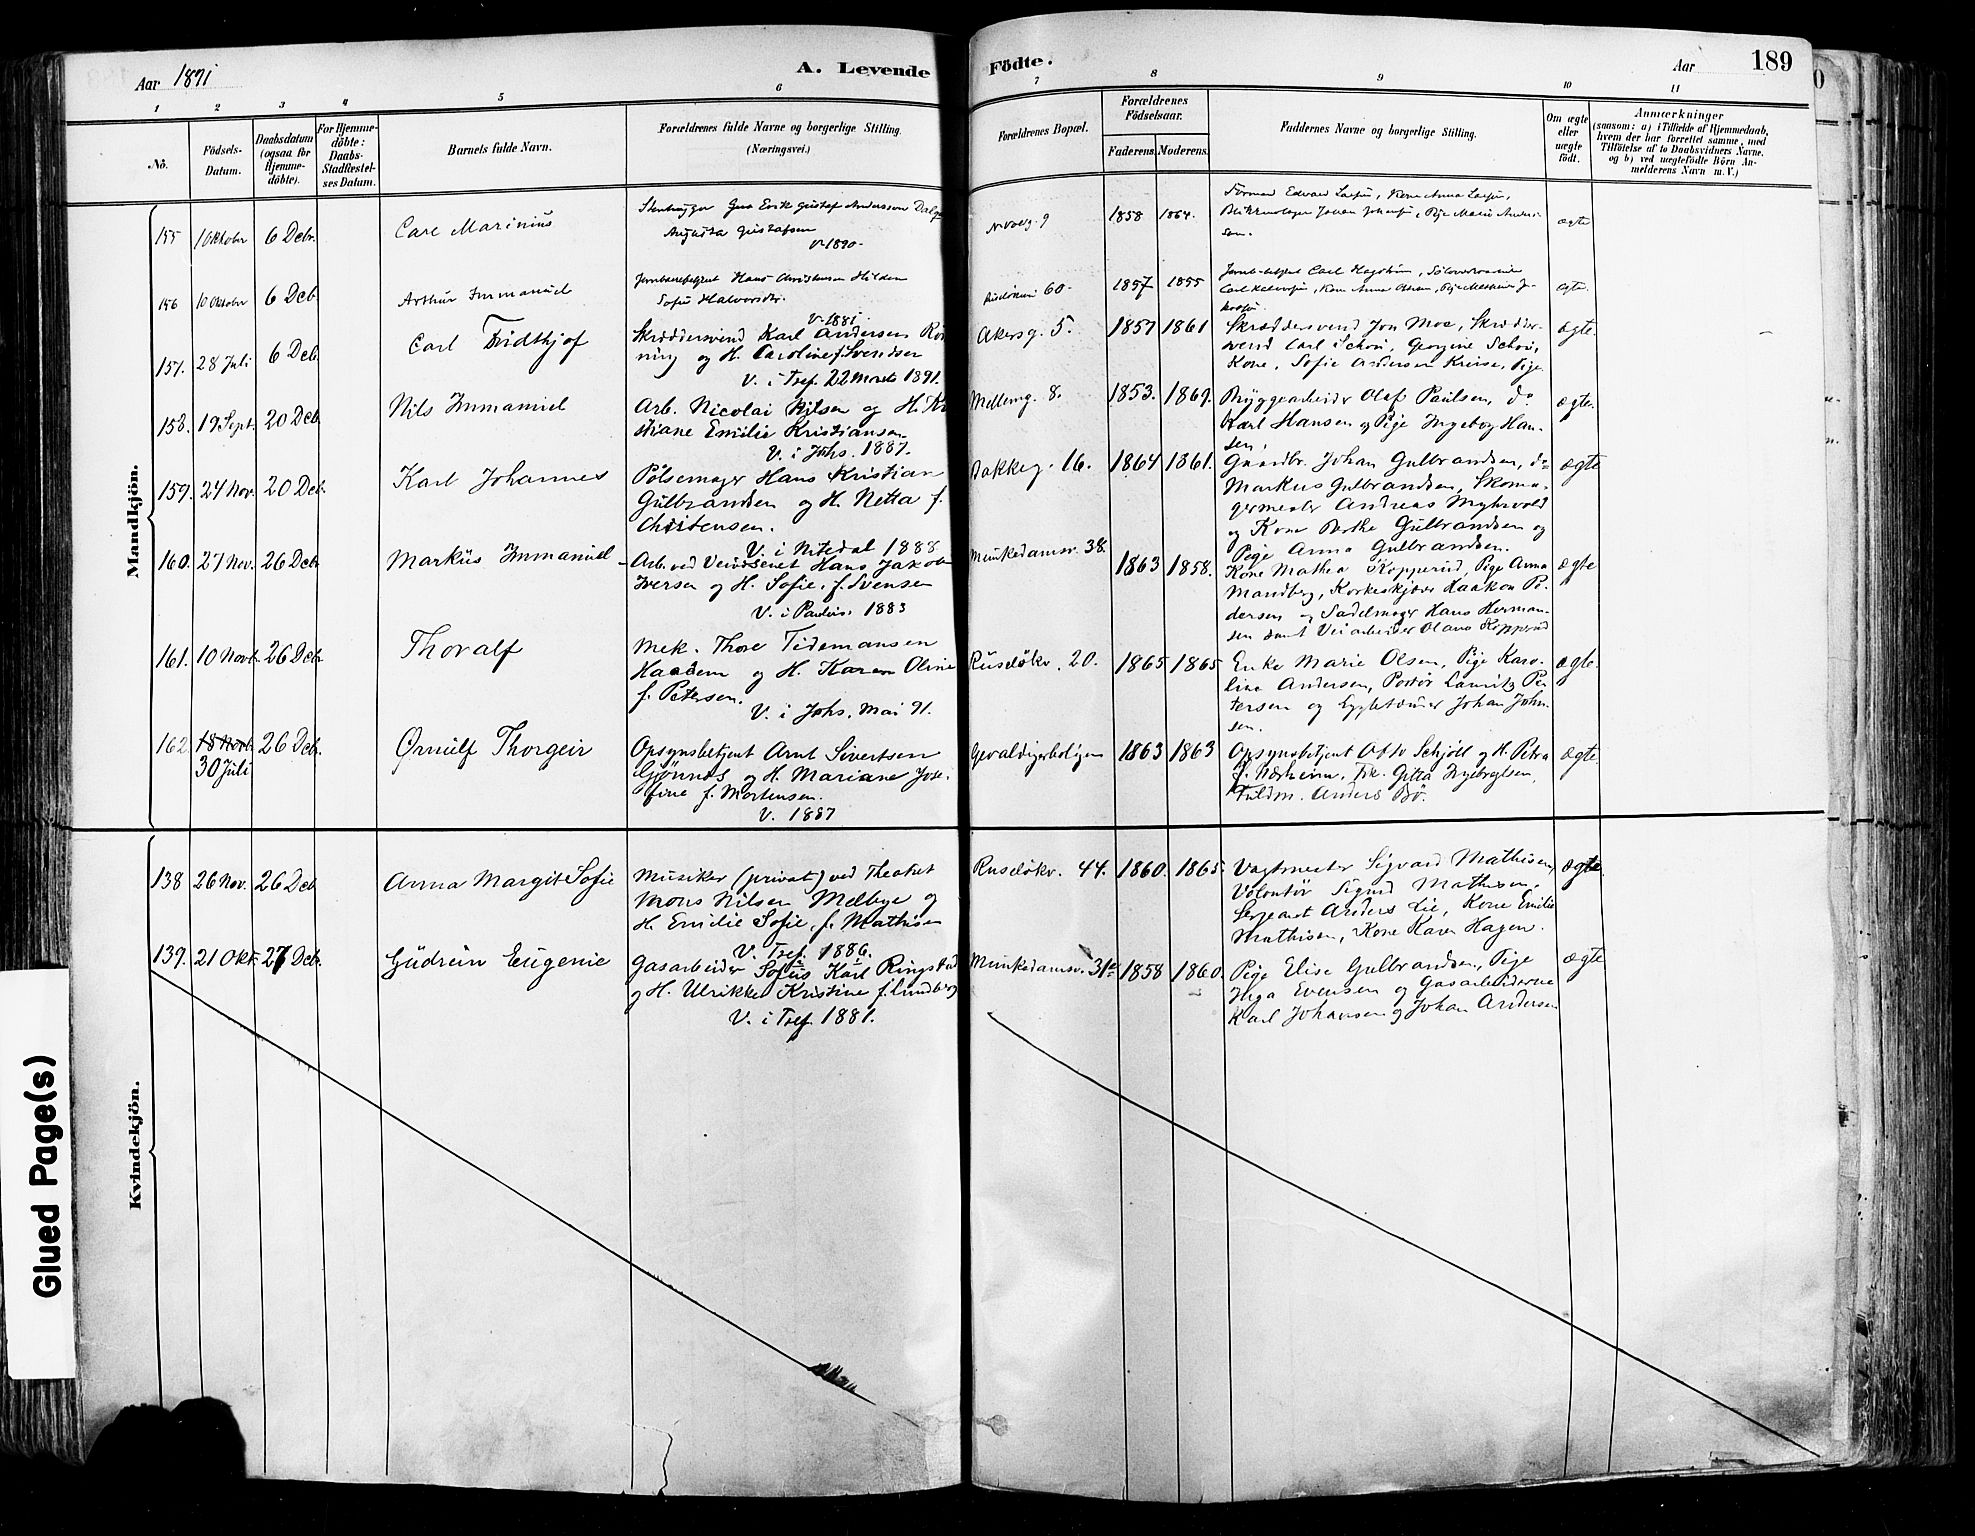 Aar 1891
A. Levende
Födte.
Aar
189
1 2 3 4 5 6
7 8 9 10 11
No.
Födsels-
Datum.
Daabsdatum
(ogsaa for
Hjemme-
döbte).
For Hjemme-
döbte:
Daabs-
Stadfæstel-
ses Datum.
Barnets fulde Navn.
Forældrenes fulde Navne og borgerlige Stilling.
(Næringsvei.)
Forældrenes Bopæl.
Forældrenes
Födselsaar.
Faderens.
Moderens.
Faddernes Navne og borgerlige Stilling.
Om ægte
eller
uægte
født.
Anmærkninger
(saasom: a) i Tilfælde af Hjemmedaab,
hvem der har forrettet samme, med
Tilföielse af to Daabsvidners Navne,
og b) ved uægtefödte Börn An-
melderens Navn m. V.)
Mandkjön.
155 1 Oktober 6 Debr. Carl Marinius
Gustaf Andersson
Augusta Gustafsen
V. 1890
9 1858 1864.
Formand Edvard
ægte
156 10 Oktober 6 Deb. Arthur Immanuel
Jernbanebetjent Hans Christensen Hilden
Sofie Halvorsdr.
V. 1881
60 1857 1855
ægte.
157. 28 Juli 6 Deb. Carl Fridthjof
Skræddersvend Karl Andersen Rön
ning og H. Caroline f. Svendsen
V. i Tref. 22 Marts 1891.
Akersg. 5. 1857 1861
Skræddersvend Jon Moe, Skrædder-
svend Carl Schou, Georgine Schou,
Kone, Sofie Andersen Pige
ægte.
158. 19 Sept. 20 Deb. Nils Immanuel
Arb. Nicolai Nilsen og H. Kri
stiane Emilie Kristiansen
V. i Johs. 1887.
Mellemg. 8. 1853. 1869.
Bryggearbeider Olaf Paulsen, do
Karl Hansen og Pige Ingeborg Han-
sen.
ægte.
159. 24 Nov. 20 Deb. Karl Johannes
Pölsemager Hans Kristian
Gulbrandsen og H. Netta f.
Christensen.
V. i Nitedal 1888
Bakkeg. 16. 1864 1861.
Gaardbr. Johan Gulbrandsen, do
Markus Gulbrandsen, Skoma-
germester Andreas Myhrvold
og Kone Berthe Gulbrandsen og
Pige Anna Gulbrandsen.
ægte
160. 27 Nov. 26 Deb. Markus Immanuel
Arb. ved Hans Jakob
Iversen og H. Sofie, f. Svensen
V. i Paulus. 1883
Munkedamsv. 38. 1863 1858.
Kone Mathea Kopperud, Pige Anna
Mandberg, Korkeskjærer Haakon Pe-
dersen og Sadelmager Hans Herman-
sen samt Veiarbeider Olaus Kopperud
ægte
161. 10 Novb. 26 Deb. Thoralf
Mek. Thore Tidemansen
Haadem og H. Karen Oline
f. Petersen.
V. i Johs. Mai 91.
Ruselökv. 20. 1865 1865
Enke Marie Olsen, Pige Karo-
line Andersen, Portör Lauritz Pe-
tersen og Johan John-
sen.
ægte.
162. 18 Novb. 30 Juli 26 Deb. Ornulf Thorgeir
Opsynsbetjent Arnt Sivertsen
Grönnes og H. Mariane Jose-
fine f. Mortensen.
V. 1887
Gevaldigerboligen 1863 1863
Opsynsbetjent Otto Schjöll og H. Petra
f. Nærheim, Frk. Gitta Ingebrgtsen,
Fuldm. Anders Bö.
ægte.
Kvindekjön.
138 26 Nov. 26 Deb Anna Margit Sofie
Musiker (privat) ved Theatret
Mons Nilsen Melbye og
H. Emilie Sofie, f. Mathisen
V. Tref. 1886.
Ruselökv. 44. 1860. 1865.
Vagtmester Sigvard Mathisen,
Volontör Sigurd Mathisen.
Sergeant Anders Lie, Kone Emilie
Mathisen, Kone Karen Hagen.
ægte
139. 21 Okt. 27 Deb. Gudrun Eugenie
Gasarbeider Sofus Karl Ringstad
og H. Ulrikke Kristine f. Lundberg
V. i Tref. 1881.
Munkedamsv. 31a 1858 1860.
Pige Elise Gulbrandsen, Pige
Inga Evensen og Gasarbeiderne
Karl Johansen og Johan Andersen
ægte
Glued Page(s)